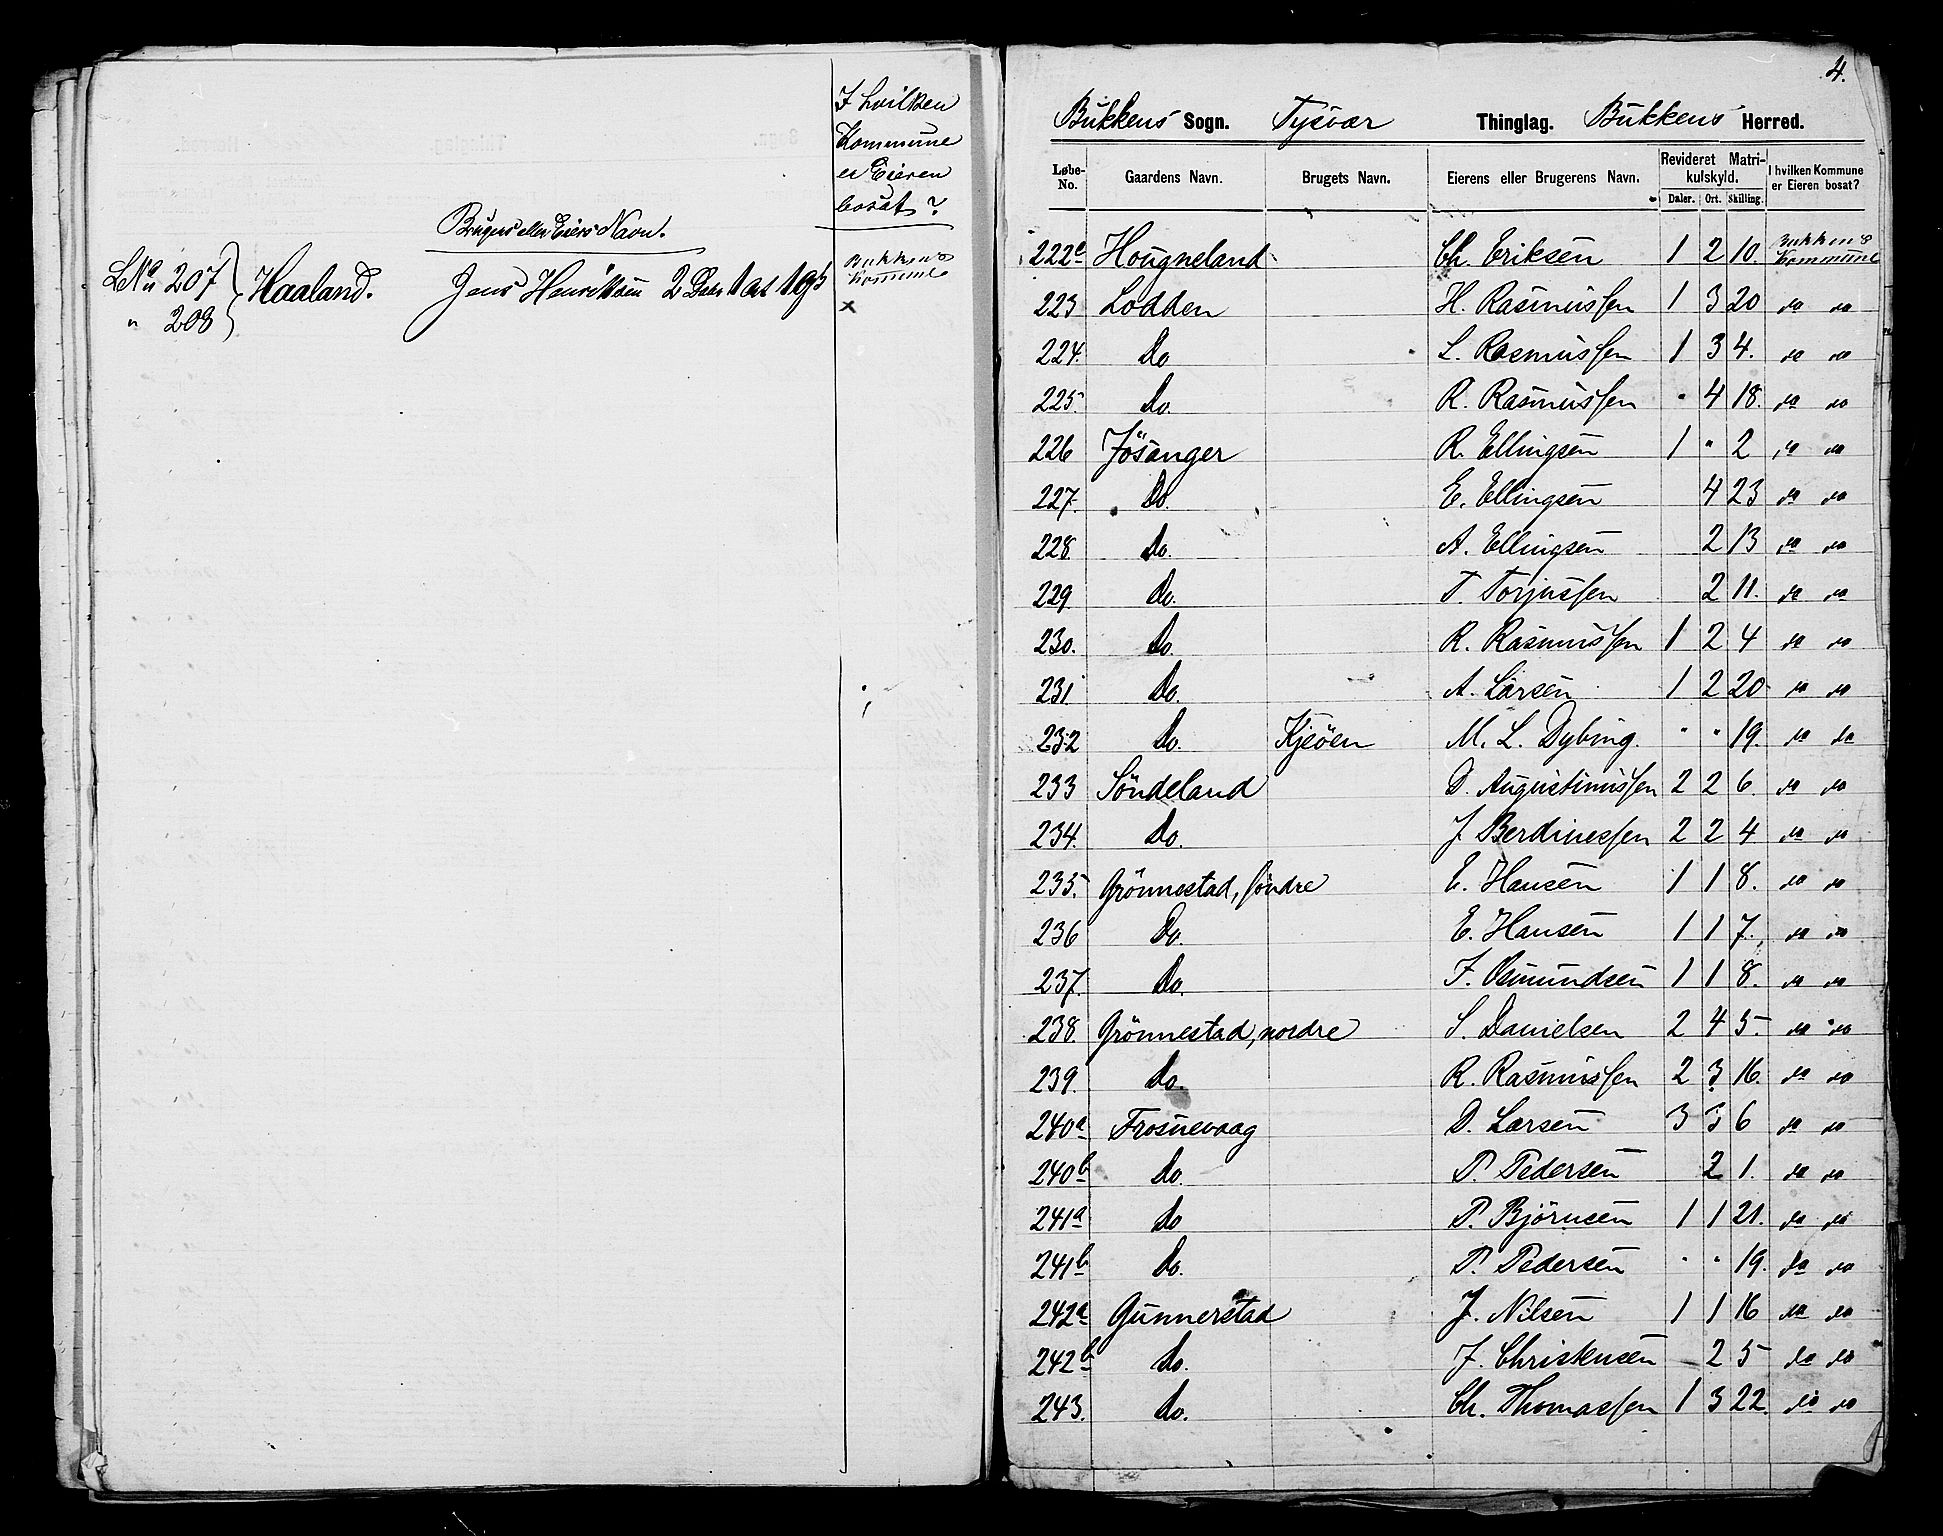 I hvilken
Kommune
er Eieren
bosat?
Brugers eller Eiers Navn.
L No 207 } Haaland. Jens Henriksen 2 Daler 1 Ort Bukkens Kommune
" 208 x
4.
Bukkens Sogn. Tysvær Thinglag. Bukkens Herred.
Løbe-No. Gaardens Navn. Brugets Navn. Eierens eller Brugerens Navn. Revideret Matrikulskyld. I hvilken Kommune er Eieren bosat?
Daler. Ort. Skilling.
222c Hougneland Ch. Eriksen 1 2 10. Bukkens Kommune
223 Lodden H. Rasmussen 1 3 20 do do
224. Do L. Rasmussen 1 3 4. do do
225. Do. R. Rasmussen " 4 18. do do
226 Jösanger R. Ellingsen 1 " 2 do do
227. Do. E. Ellingsen 4 23 do do
228 Do. A. Ellingsen 2 13 do do
229 Do. T. Torjussen 2 11. do do
230. Do. R. Rasmussen 1 2 4 do do
231 Do. A. Larsen 1 2 20 do do
232 Do. Kjeöen M. L. Dybing. " " 19. do do
233 Söndeland D. Augustinussen 2 2 6. do do
234. Do. J. Berdinessen 2 2 4 do do
235. Grönnestad, söndre E. Hansen 1 1 8. do do
236 Do. E. Hansen 1 1 7. do do
237. Do. F. Osmundsen 1 1 8. do do
238. Grönnestad, nordre S. Danielsen 2 4 5. do do
239. Do. R. Rasmussen 2 3 16. do do
240a Frosnevaag D. Larsen 3 3 6 do do
240b Do. P. Pedersen 2 1. do do
241a Do P. Björnsen 1 1 21. do do
241b Do. P. Pedersen " " 19. do do
242a Gunnerstad J. Nilsen 1 1 16 do do
242b Do. J. Christensen 2 5 do do
243. Do. Ch. Thomassen 1 3 22. do do